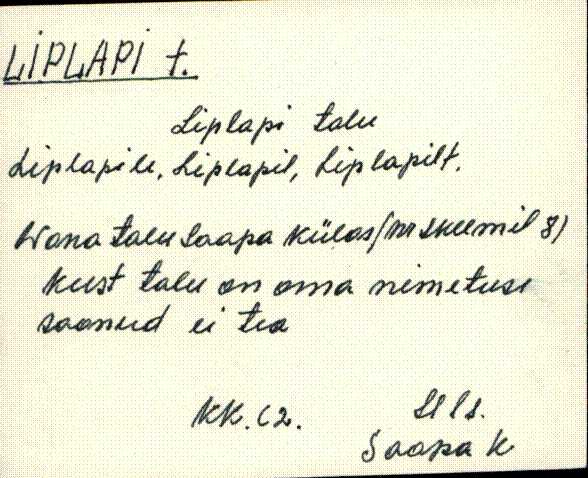 LIPLAPI t.
Liplapi talu
Liplapile, Liplapil, Liplapilt.
Wana talu Saapa külas (nr skeemil 8)
kust talu on oma nimetuse
saanud ei tea
KK. 62.
Saapa k